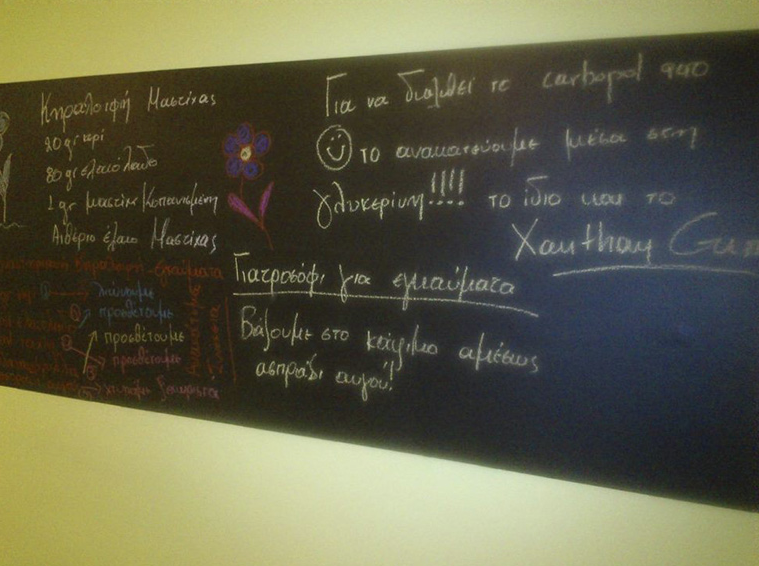 Κηραλοιφή Μαστίχας
20 gr κερί
80 gr ελαιόλαδο
1 gr μαστίχα κοπανισμένη
Αιθέριο έλαιο Μαστίχας
λιώνουμε
προσθέτουμε
προσθέτουμε
προσθέτουμε
Για να διαλυθεί το carbopol 940
το ανακατεύουμε μέσα στη
γλυκερίνη!!!! το ίδιο και το
Xanthan Gum
Γιατροσόφι για εγκαύματα
Βάζουμε στο κάψιμο αμέσως
ασπράδι αυγού!